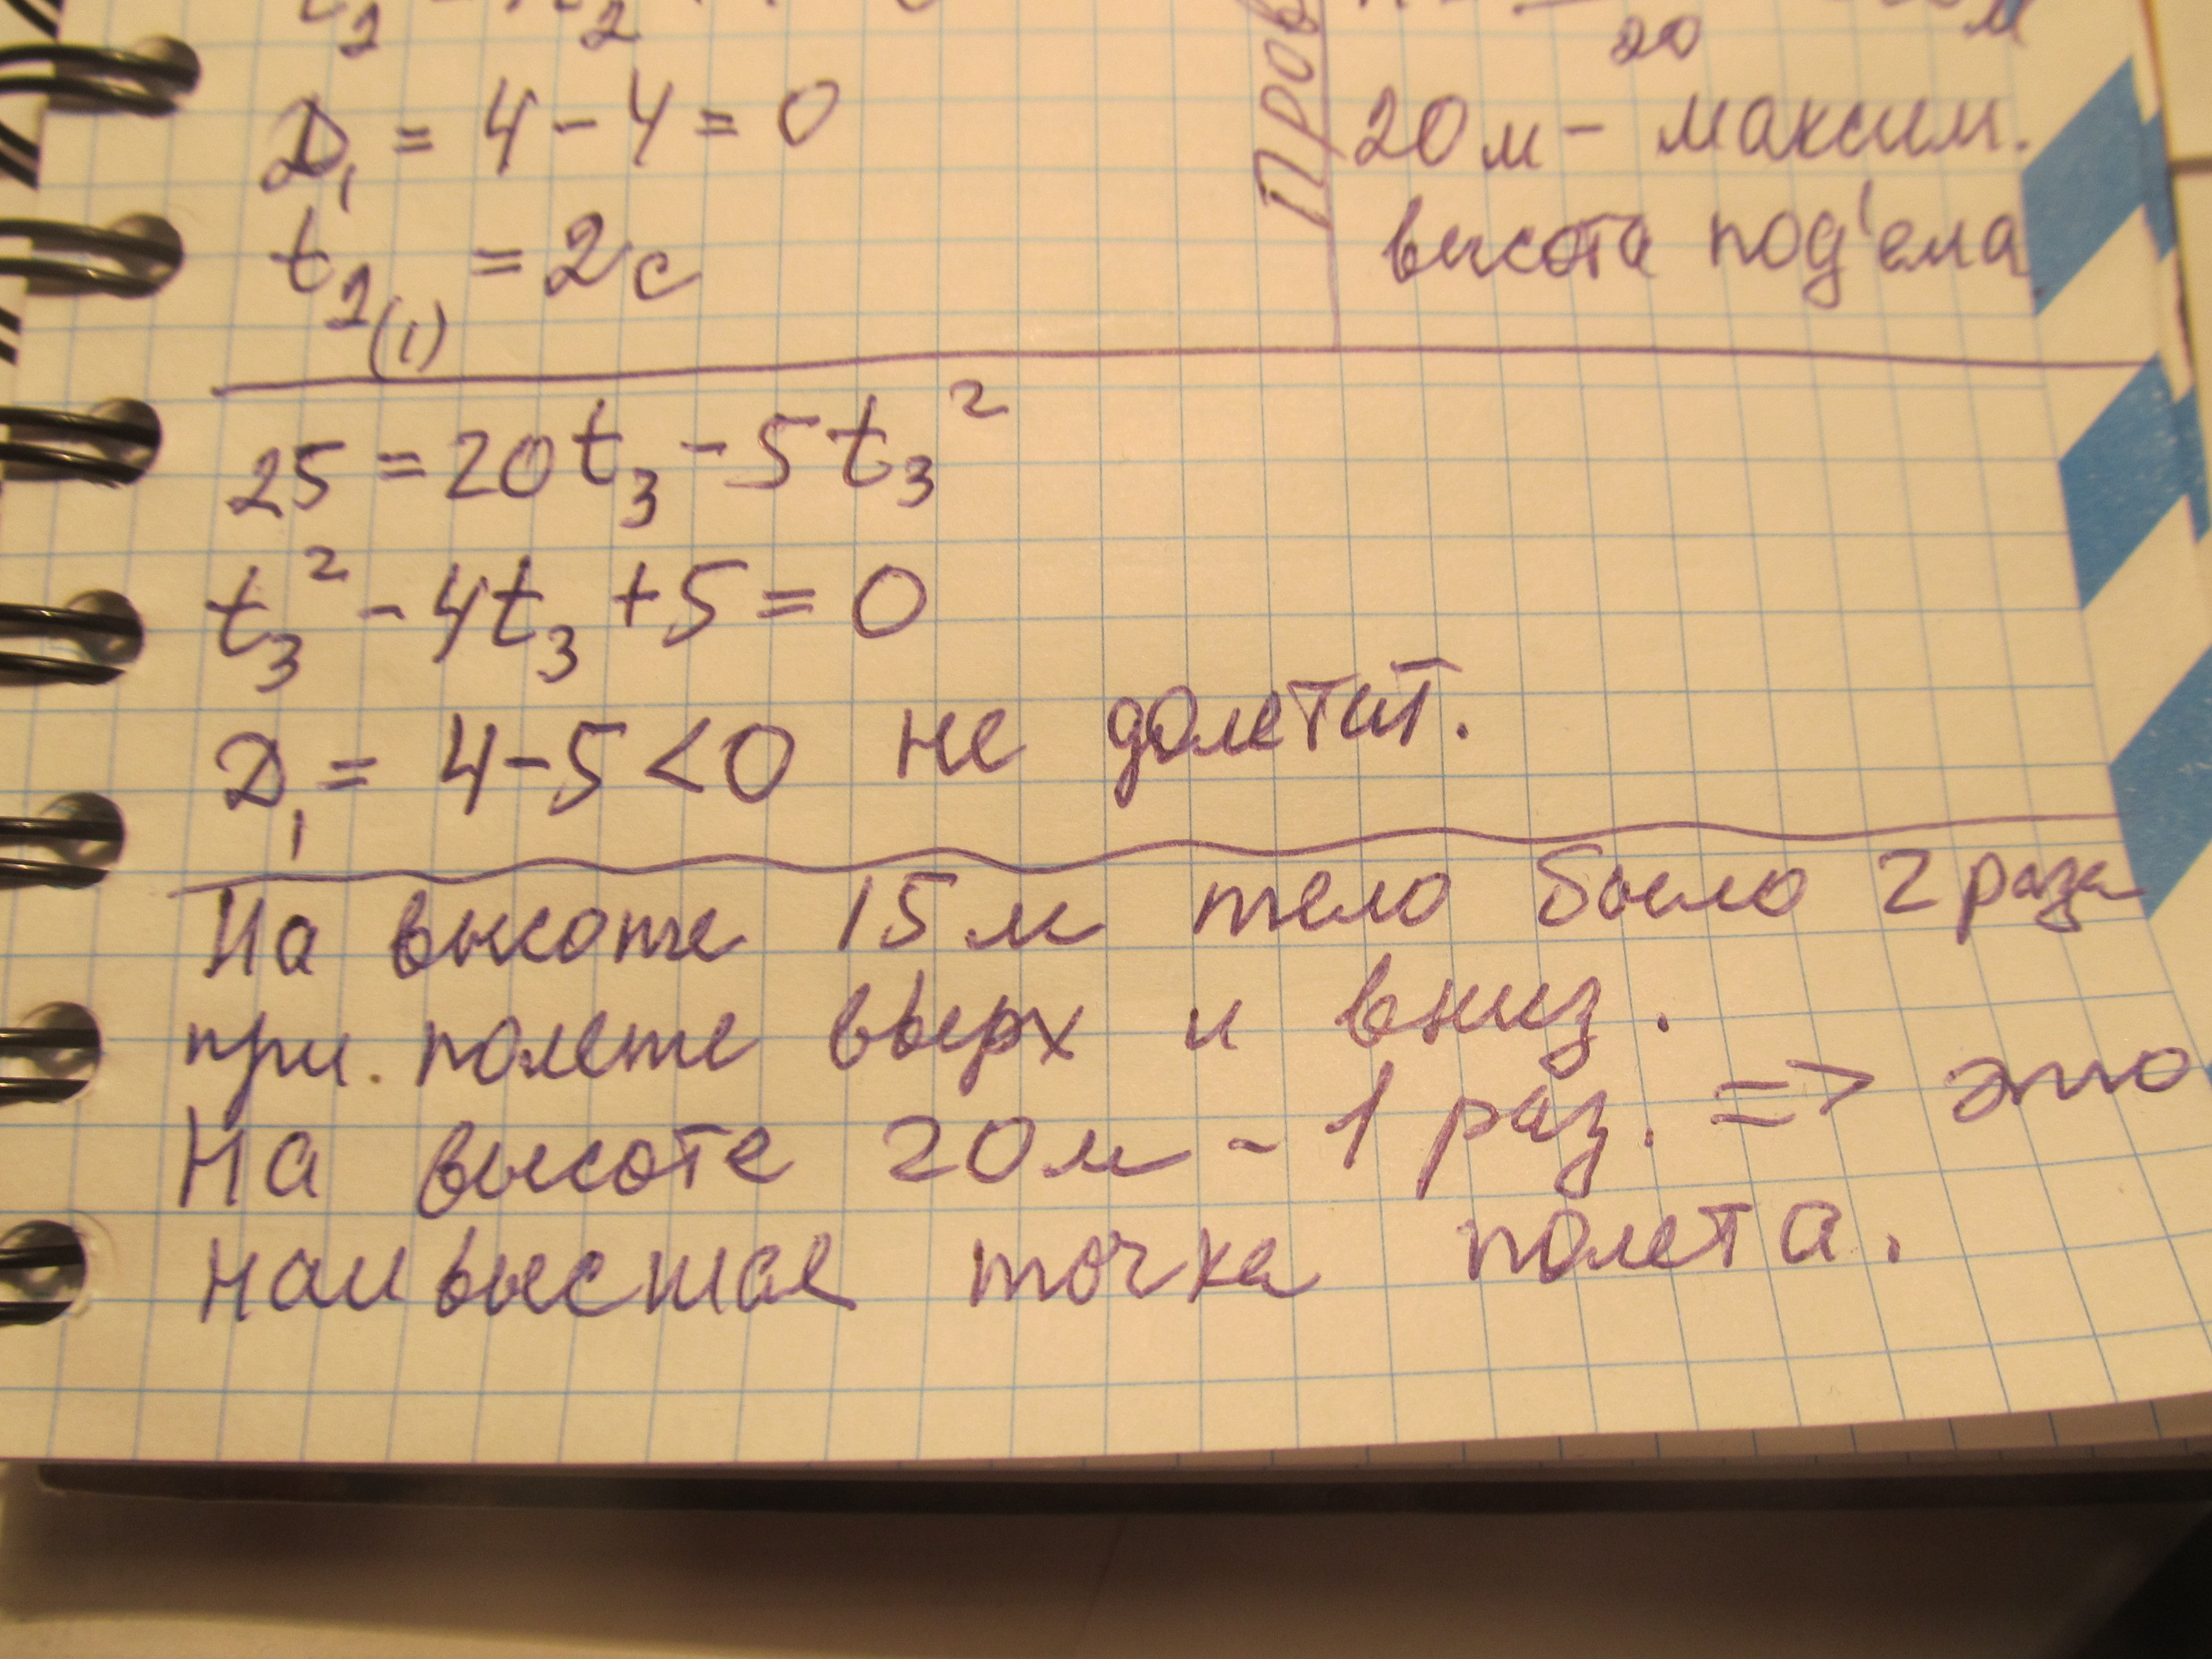 D₁ = 4 - 4 = 0
t₂₍₁₎ = 2с
Пров
20
м
20м - максим.
высота под'ема
25 = 20t₃ - 5t₃²
t₃² - 4t₃ + 5 = 0
D₁ = 4 - 5 < 0 не долетит.
На высоте 15 м тело было 2 раза
при полете вверх и вниз.
На высоте 20 м - 1 раз. => это
наивысшая точка полета.